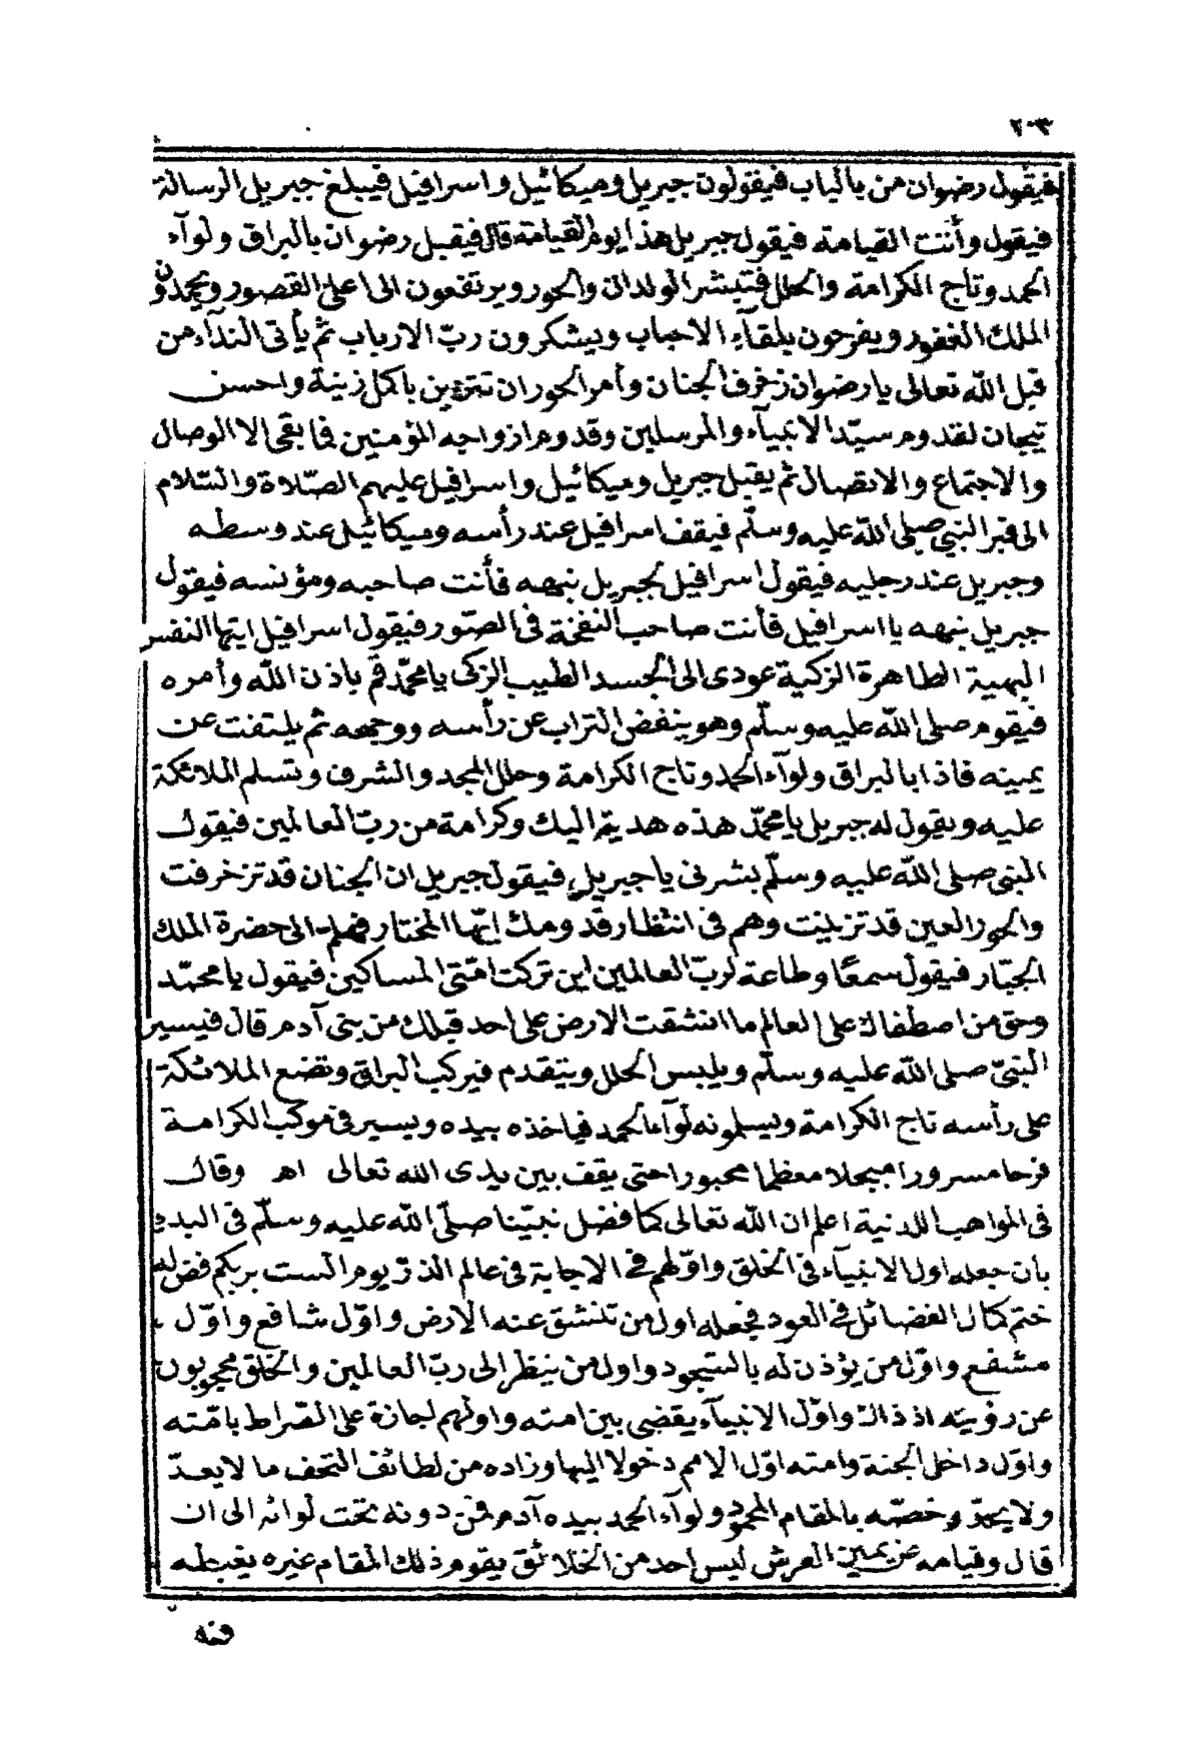 ٢٠٣
فيقول رضوان من بالباب فيقولون جبريل وميكائيل واسرافيل فيبلغ جبريل الرسالة
فيقول وأنت القيامة فيقول جبريل هذا يوم القيامة قال فيقبل رضوان بالبراق ولوآء
الحمد وتاج الكرامة والحلل فتبشر الولدان والحور ويرتفعون الى اعلى القصور ويحمدون
الملك الغفور ويفرحون بلقآء الاحباب ويشكرون ربّ الارباب ثم يأتى الندآء من
قبل الله تعالى يا رضوان زخرف الجنان وأمر الحور ان تتزين باكمل زينة واحسن
تيجان لقدوم سيّد الانبيآء والمرسلين وقدوم ازواجه المؤمنين فما بقى الا الوصال
والاجتماع والاتصال ثم يقبل جبريل وميكائيل واسرافيل عليهم الصّلاة والسّلام
الى قبر النبي صلى الله عليه وسلّم فيقف اسرافيل عند رأسه وميكائيل عند وسطه
وجبريل عند رجليه فيقول اسرافيل لجبريل نبهه فأنت صاحبه ومؤنسه فيقول
جبريل نبهه يا اسرافيل فأنت صاحب النفخة فى الصّور فيقول اسرافيل ايتها النفس
البهية الطاهرة الزكية عودى الى الجسد الطيب الزكى يا محمّد قم باذن الله وأمره
فيقوم صلى الله عليه وسلّم وهو ينفض التراب عن رأسه ووجهه ثم يلتفت عن
يمينه فاذا بالبراق ولوآء الحمد وتاج الكرامة وحلل المجد والشرف وتسلم الملائكة
عليه ويقول له جبريل يا محمّد هذه هدية اليك وكرامة من ربّ العالمين فيقول
النبى صلى الله عليه وسلّم بشرنى يا جبريل فيقول جبريل ان الجنان قد تزخرفت
والحور العين قد تزينت وهم فى انتظار قدومك ايّها المختار فهلم الى حضرة الملك
الجبّار فيقول سمعًا وطاعة لربّ العالمين اين تركت امّتى المساكين فيقول يا محمّد
وحق من اصطفاك على العالم ما انشقت الارض على احد قبلك من بنى آدم قال فيسير
النبىّ صلى الله عليه وسلّم ويلبس الحلل ويتقدم فيركب البراق وتضع الملائكة
على رأسه تاج الكرامة ويسلمونه لوآء الحمد فياخذه بيده ويسير فى موكب الكرامة
فرحا مسرورا مبجلا معظما محبورا حتى يقف بين يدى الله تعالى اھ وقال
فى المواهب اللدنية اعلم ان الله تعالى كما فضل نبيّنا صلّى الله عليه وسلّم فى البدء
بان جعله اول الانبيآء فى الخلق واوّلهم فى الاجابة فى عالم الذرّ يوم الست بربكم فض له
ختم كمال الفضائل فى العود فجعله اول من تنشق عنه الارض واوّل شافع واوّل
مشفع واوّل من يؤذن له بالسّجود واول من ينظر الى ربّ العالمين والخلق محجوبون
عن رؤيته اذ ذاك واوّل الانبيآء يقضى بين امته واولهم اجازة على الصّراط بامّته
واوّل داخل الجنة وامته اوّل الامم دخولا اليها وزاده من لطائف التحف ما لا يعدّ
ولا يحدّ وخصّه بالمقام المحمود ولوآء الحمد بيده آدم فمن دونه تحت لوائه الى ان
قال وقيامه عن يمين العرش ليس احد من الخلائق يقوم ذلك المقام غيره يغبطه
فيه